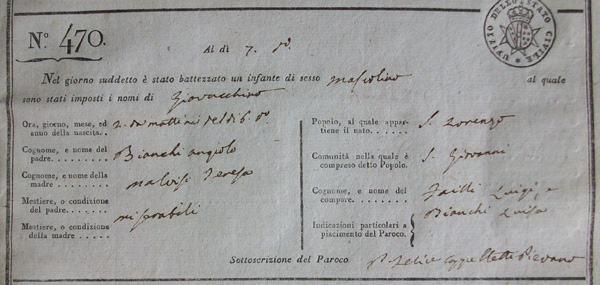 N.º 470.
Al dì 7. do.
UFIZIO DELLO STATO CIVILE
Nel giorno suddetto è stato battezzato un infante di sesso mascolino al quale
sono stati imposti i nomi di Giovacchino
Ora, giorno, mese, ed
anno della nascita.
2. da mattina del dì 6. do.
Cognome, e nome del
padre.
Bianchi Angiolo
Cognome, e nome della
madre
Malvisi Teresa
Mestiere, o condizione
del padre.
miserabili
Mestiere, o condizione
della madre
Popolo, al quale appar-
tiene il nato.
S. Lorenzo
Comunità nella quale è
compreso detto Popolo.
S. Giovanni
Cognome, e nome del
compare.
Failli Luigi, e
Bianchi Luisa
Indicazioni particolari a
piacimento del Paroco.
Sottoscrizione del Paroco
P. Felice Cappelletti Pievano